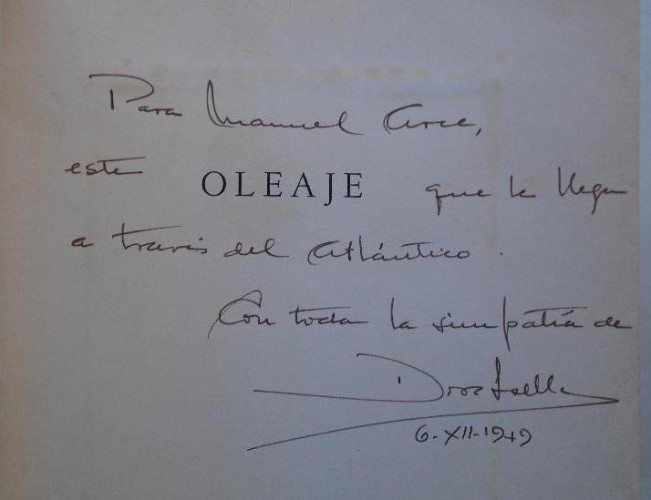 Para Manuel Arce,
este OLEAJE que le llega
a través del Atlántico.
Con toda la simpatía de
6-XII-1949